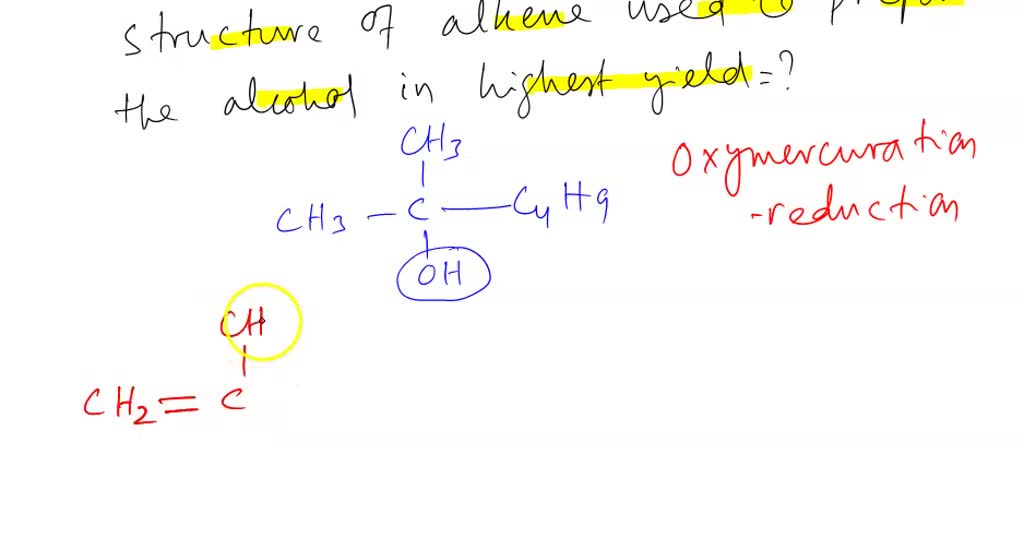 structure of alkene used to
the alcohol in highest yield=?
CH3
CH3 – C – C4H9
OH
Oxymercuration
-reduction
CH
CH2 = C